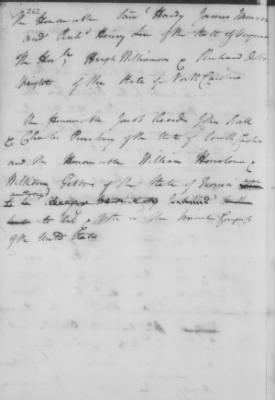 262
The Honourable Saml Hardy James Monroe
and Richd Henry Lee of the State of Virginia
The Honble Hugh Williamson & Richard Dobs
Speight of the State of North Carolina
The Honourable Jacob Read John Bull
& Charles Pinckney of the State of South Carolina
and the Honourable William Houstoun &
William Gibbons of the State of Georgia
authorized
to to & Vote in the present Congress
of the United States